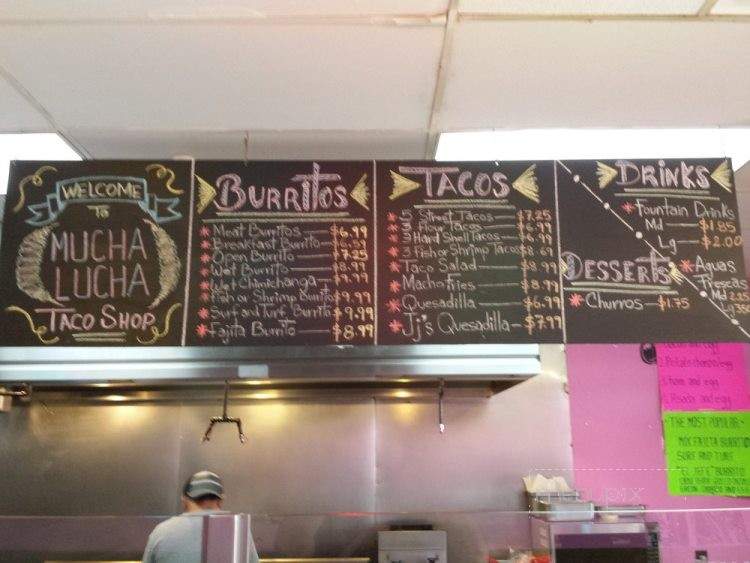 WELCOME
TO
MUCHA
LUCHA
TACO SHOP
BURRITOS
* Meat Burritos - $6.99
* Breakfast Burrito - $6.59
* Open Burrito - $7.25
* Wet Burrito - $8.99
* Wet Chimichanga - $9.99
* Fish or Shrimp Burrito $9.99
* Surf and Turf Burrito $9.99
* Fajita Burrito - $8.99
TACOS
* 5 Street Tacos - $7.25
* 3 Flour Tacos - $6.99
* 3 Hard Shell Tacos - $6.99
* 3 Fish or Shrimp Tacos $8.69
* Taco Salad - $8.99
* Macho Fries - $8.79
* Quesadilla - $6.99
* Jj's Quesadilla - $7.99
DRINKS
* Fountain Drinks
Md - $1.85
Lg - $2.00
* Aguas
Frescas
Md
Lg
DESSERTS
* Churros - $1.75
THE MOST POPULAR
BURRITO
SURF AND TURF
"EL JEFE" BURRITO